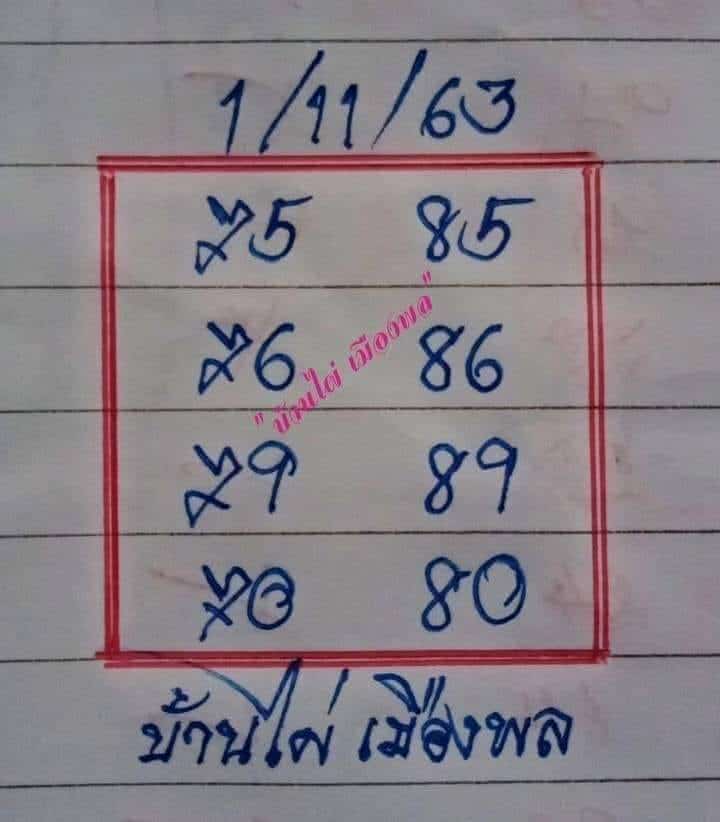 1/11/63
75 85
76 86
"บ้านไผ่ เมืองพล"
79 89
70 80
บ้านไผ่ เมืองพล